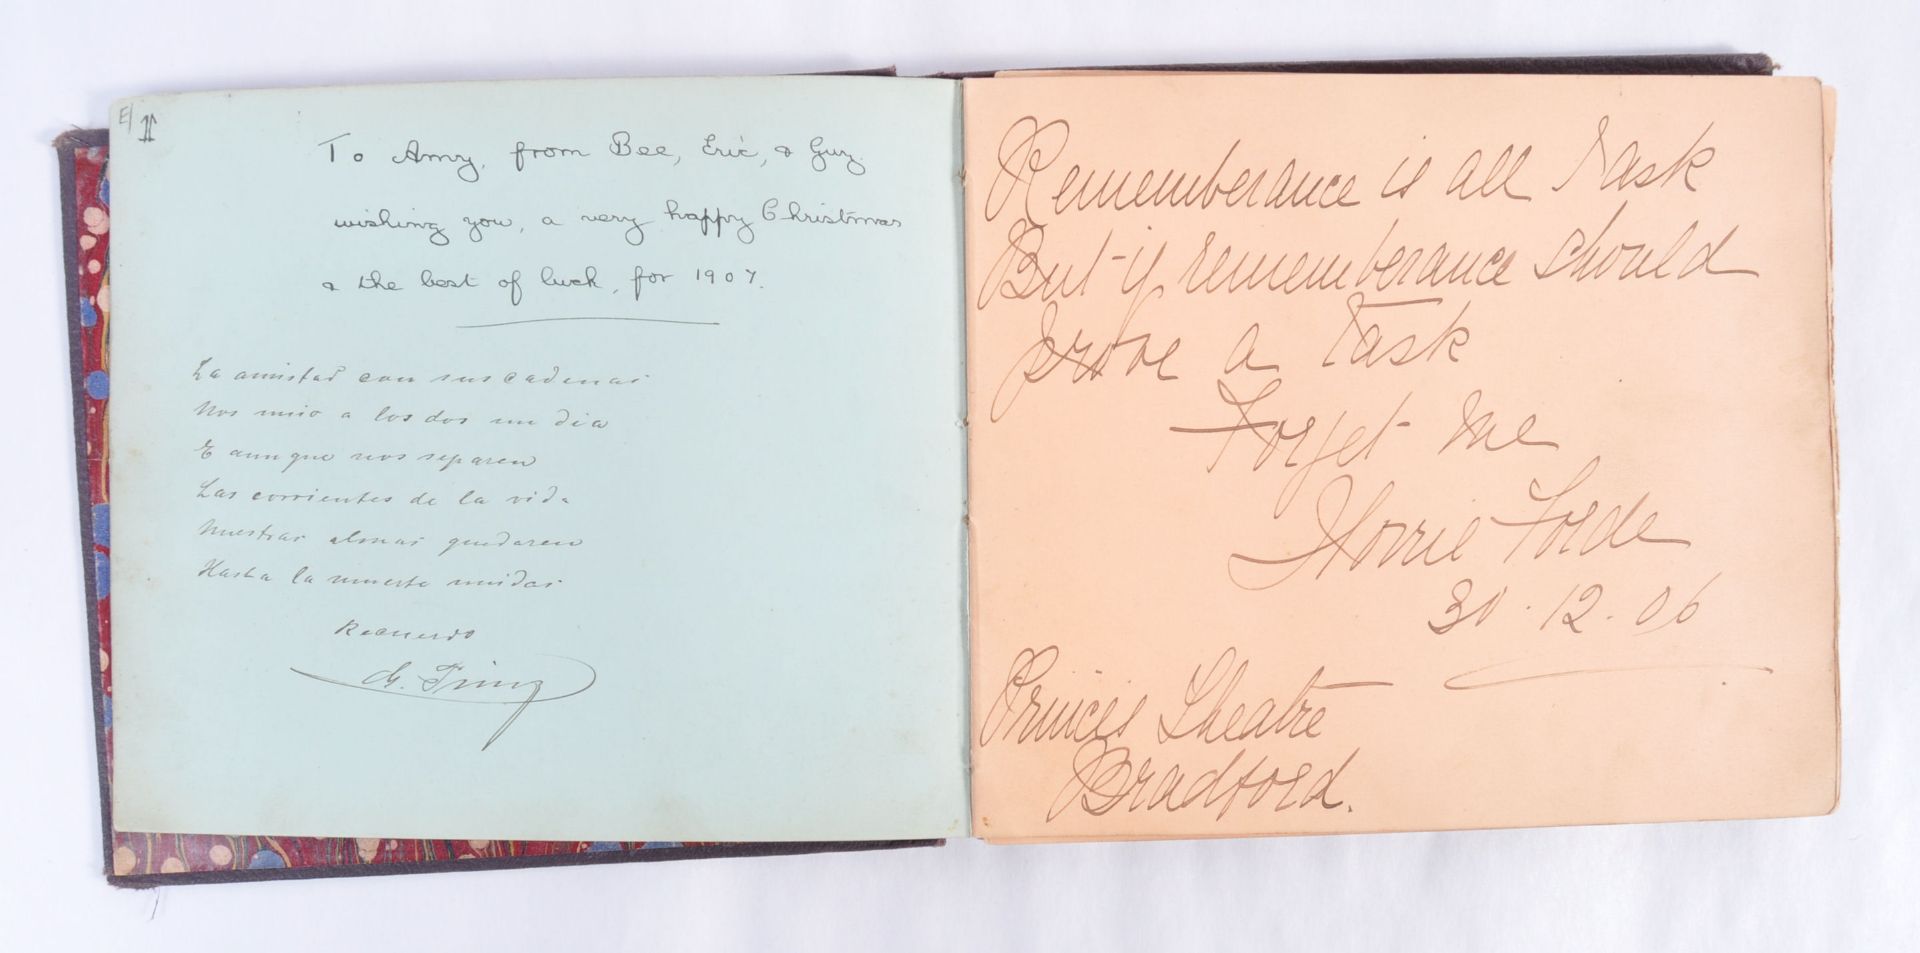 E/ 11
To Amy, from Bee, Eric, & Guy.
wishing you, a very happy Christmas
& the best of luck, for 1907.
La amistad con sus cadenas
Nos unio a los dos un dia
E aunque nos separen
Las corrientes de la vida
Nuestras almas quedaren
Hasta la muerte unidas
Recuerdo
G.
Rememberance is all I ask
But if rememberance should
prove a Task
Forget Me
Florrie Forde
30.12.06
Princes Theatre
Bradford.